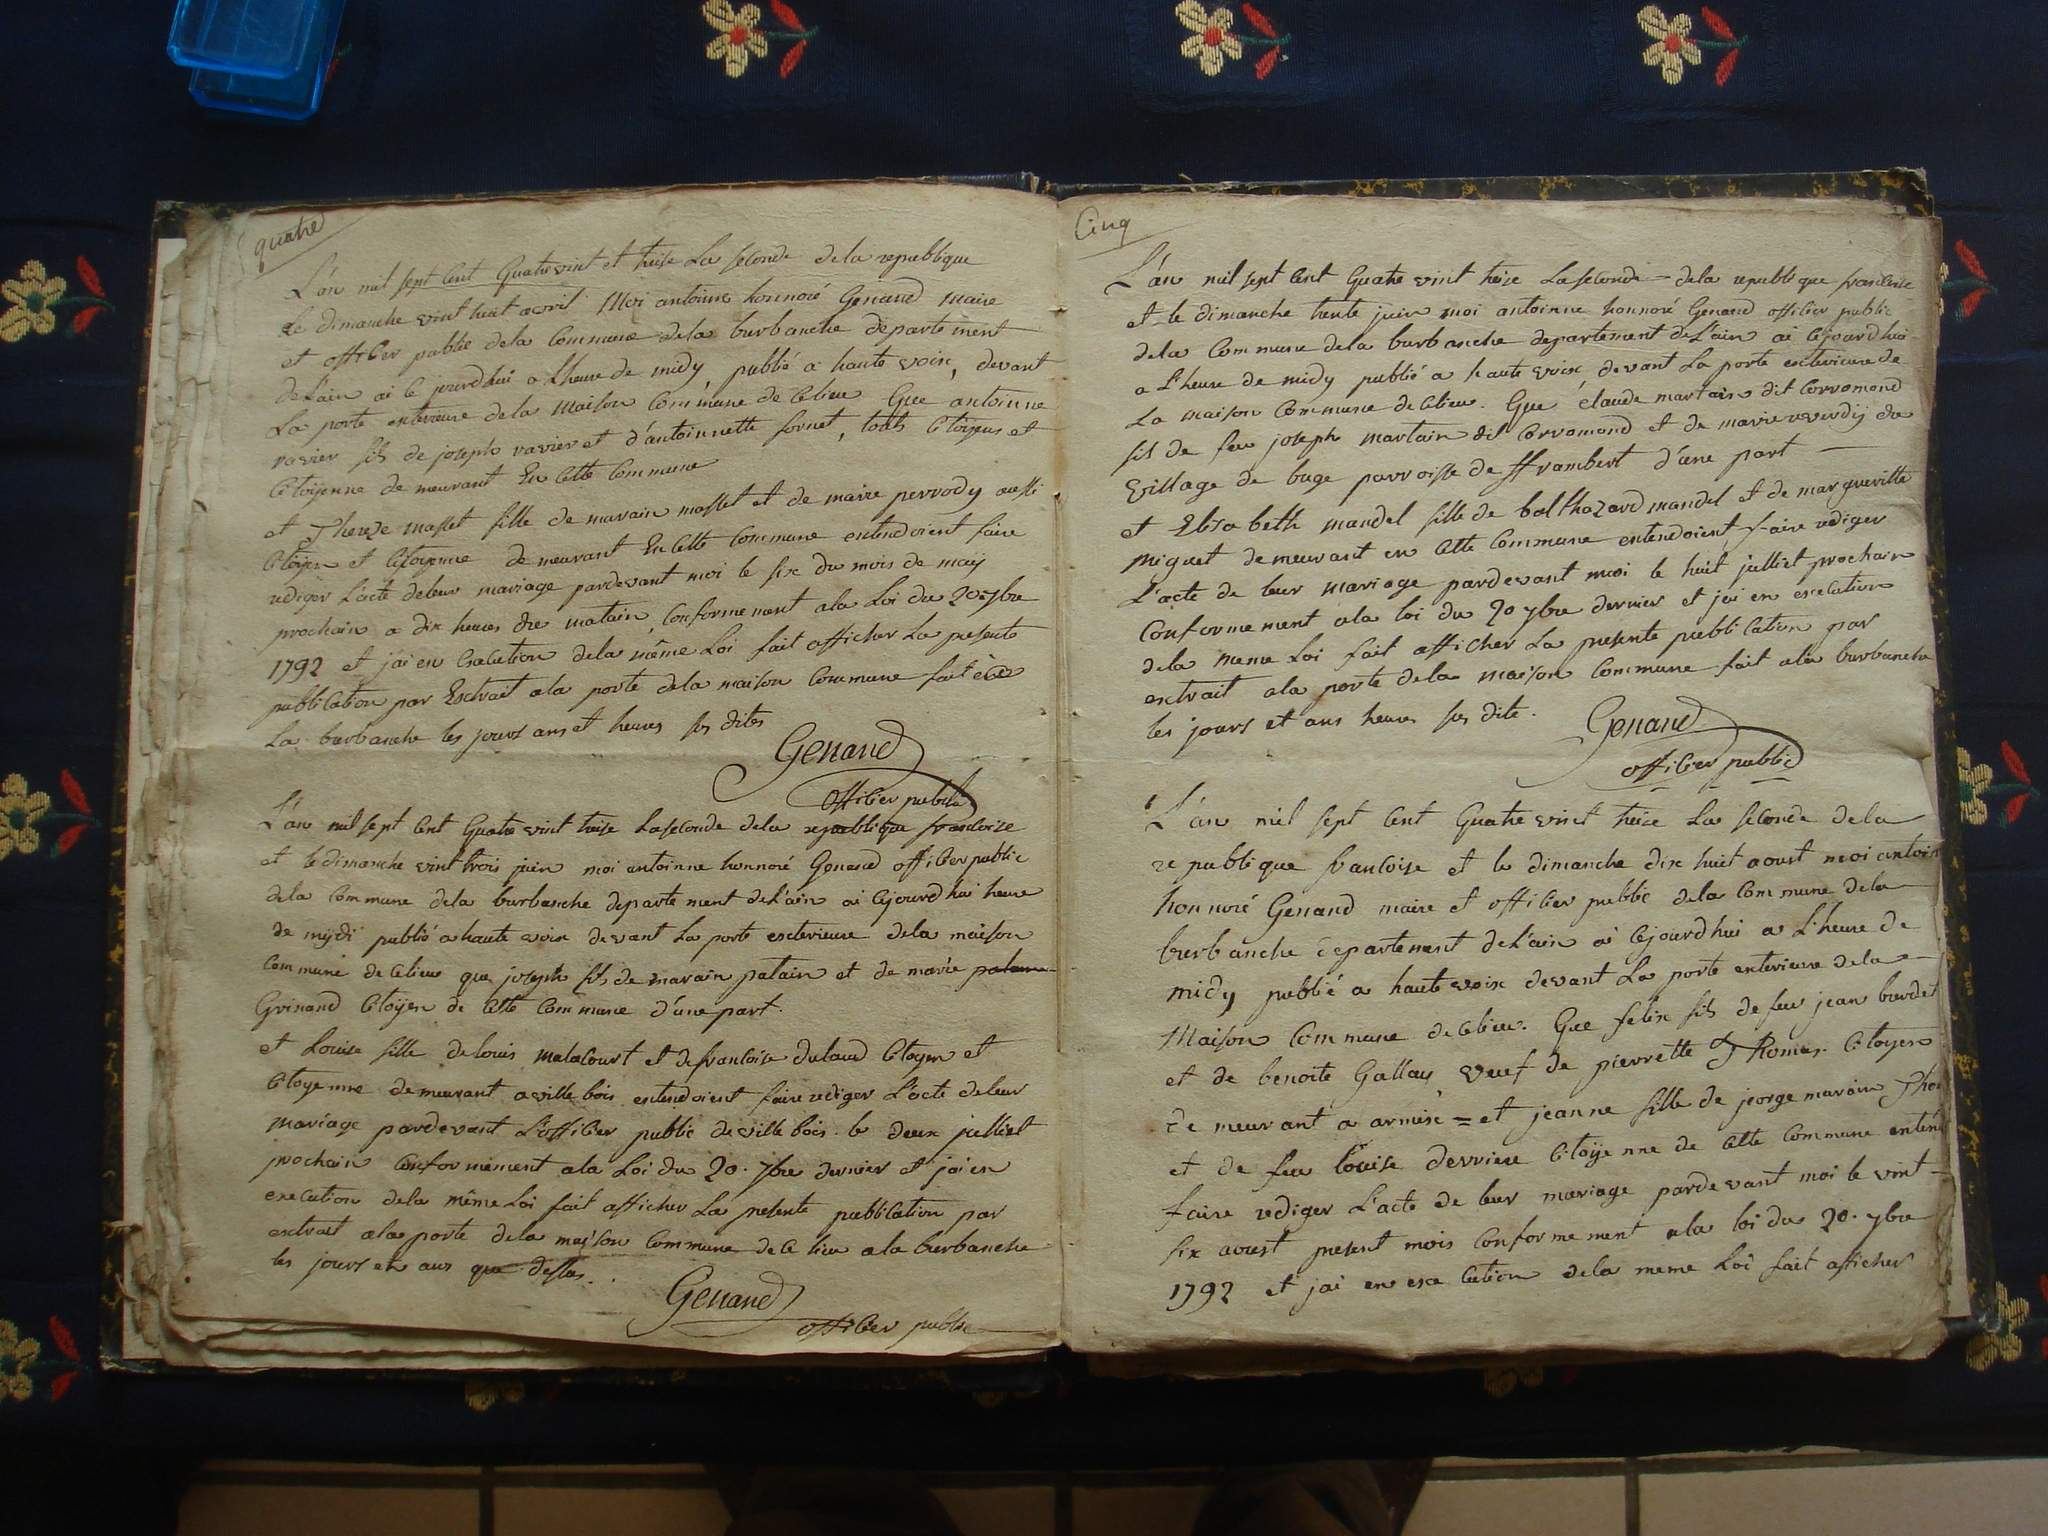 quatre
L'an mil sept cent Quatre vint et treise La seconde de la republique
Le dimanche vint huit avril Moi antoinne honnoré Genand Maire
et officier public dela Commune dela burbanche departement
de L'ain ai ce jourdhui a Lheure de midy publié a haute voix, devant
La porte exterieure dela Maison Commune de Celieu Que antoinne
ravier fils de joseph ravier et d'antoinnette fornet, touts Citoyens et
Citoyenne demeurant En Cette Commune
et Thereze masset fille de marain masset et de marie perrody aussi
Citoyen et Citoyenne demeurant En Cette Commune entendoient faire
rediger L'acte deleur mariage pardevant moi le six du mois de maÿ
prochain a dix heures du matain Conformement ala Loi du 20 7bre
1792 et j'ai en Execution dela même Loi fait afficher La presente
publication par Extrait ala porte dela maison Commune fait a
La burbanche les jours ans et heures sus dites
Genand
officier public
L'an mil sept Cent Quatre vint treise La seconde dela republique francoise
et le dimanche vint trois juin moi antoinne honnoré Genand officier public
dela Commune dela burbanche departement deL'ain ai Cejourdhui heure
de mÿdi publié a haute voix devant La porte exterieure dela maison
Commune de Celieu que joseph fils de marain patain et de marie
Guinand Citoÿen de Cette Commune d'une part.
et Louise fille deLouis Malacourt et de francoise dulaud Citoyen et
Citoyenne demeurant a villebois entendoient faire rediger L'acte deleur
mariage pardevant L'officier public de ville bois le deux julliet
prochain Conformément ala Loi du 20. 7bre dernier et jai en
execution dela même Loi fait afficher La presente publication par
extrait ala porte dela maison Commune de Ce lieu ala burbanche
les jours et ans que dessus.
Genand
officier public
Cinq
L'an mil sept Cent Quatre vint treise La seconde - dela republique francoise
et le dimanche trente juin moi antoinne honnoré Genand officier public
dela Commune dela burbanche departement deL'ain ai Cejourdhui
a L'heure de midy publié a haute voix devant La porte exterieure de
La maison Commune de Celieu. Que claude martain dit Corromand
fils de feu joseph martain dit Corromand et de marie reverdÿ du
village de buge parroisse de st rambert d'une part -
et Elisabeth mandel fille de balthazard mandel et de margueritte
Miguet demeurant en Cette Commune entendoient faire rediger
L'acte de leur mariage pardevant moi le huit julliet prochain
Conformement ala loi du 20 7bre dernier et jai en execution
dela meme Loi fait afficher La presente publication par
extrait ala porte dela maison Commune fait ala burbanche
les jours et ans heures sus dite.
Genand
officier public
L'an mil sept Cent Quatre vint treise La seconde dela
republique francoise et le dimanche dix huit aoust moi antoin
honnoré Genand maire et officier public dela Commune dela
burbanche departement deL'ain ai Cejourdhui a L'heure de
midy publié a haute voix devant La porte exterieure dela
Maison Commune de Celieu. Que felix fils de feu jean burdet
et de benoite Gallay veuf de pierrette Thomas Citoyen
demeurant a armise = et jeanne fille de jeorge marain Tho
et de feu Louise derriere Citoÿenne de Cette Commune enten
faire rediger L'acte de leur mariage pardevant moi le vint-
six aoust present mois Conformement ala loi du 20. 7bre
1792 et jai en execution dela meme Loi fait afficher